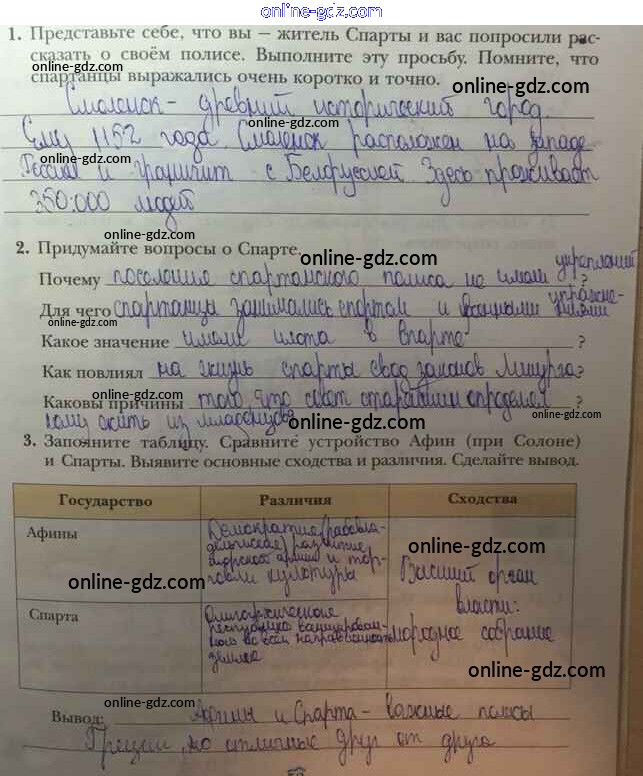 online-gdz.com
1. Представьте себе, что вы – житель Спарты и вас попросили рас-
сказать о своём полисе. Выполните эту просьбу. Помните, что
спартанцы выражались очень коротко и точно.
online-gdz.com
online-gdz.com
Смоленск – древний исторический город.
Ему 1152 года. Смоленск расположен на западе
online-gdz.com
online-gdz.com
России и граничит с Белоруссией Здесь проживает
350.000 людей
online-gdz.com
2. Придумайте вопросы о Спарте.
online-gdz.com
online-gdz.com
укреплений
Почему поселения спартанского полиса не имели ?
Для чего спартанцы занимались спортом и военными упражне-
ниями
online-gdz.com
Какое значение имели илоты в Спарте ?
Как повлиял на жизнь спарты свод законов Ликурга?
online-gdz.com
Каковы причины того, что совет старейшин определял
online-gdz.com
кому жить из младенцев
online-gdz.com
3. Заполните таблицу. Сравните устройство Афин (при Солоне)
и Спарты. Выявите основные сходства и различия. Сделайте вывод.
online-gdz.com
Государство Различия Сходства
Афины
Демократия (рабовла-
дельческая) развитие
морской армии и тор-
говли культуры
online-gdz.com
online-gdz.com
Высший орган
власти:
народное собрание
Спарта
Олигархическая
республика
земле
online-gdz.com
online-gdz.com
online-gdz.com
Вывод: Афины и Спарта – важные полисы
Греции, но отличные друг от друга
online-gdz.com